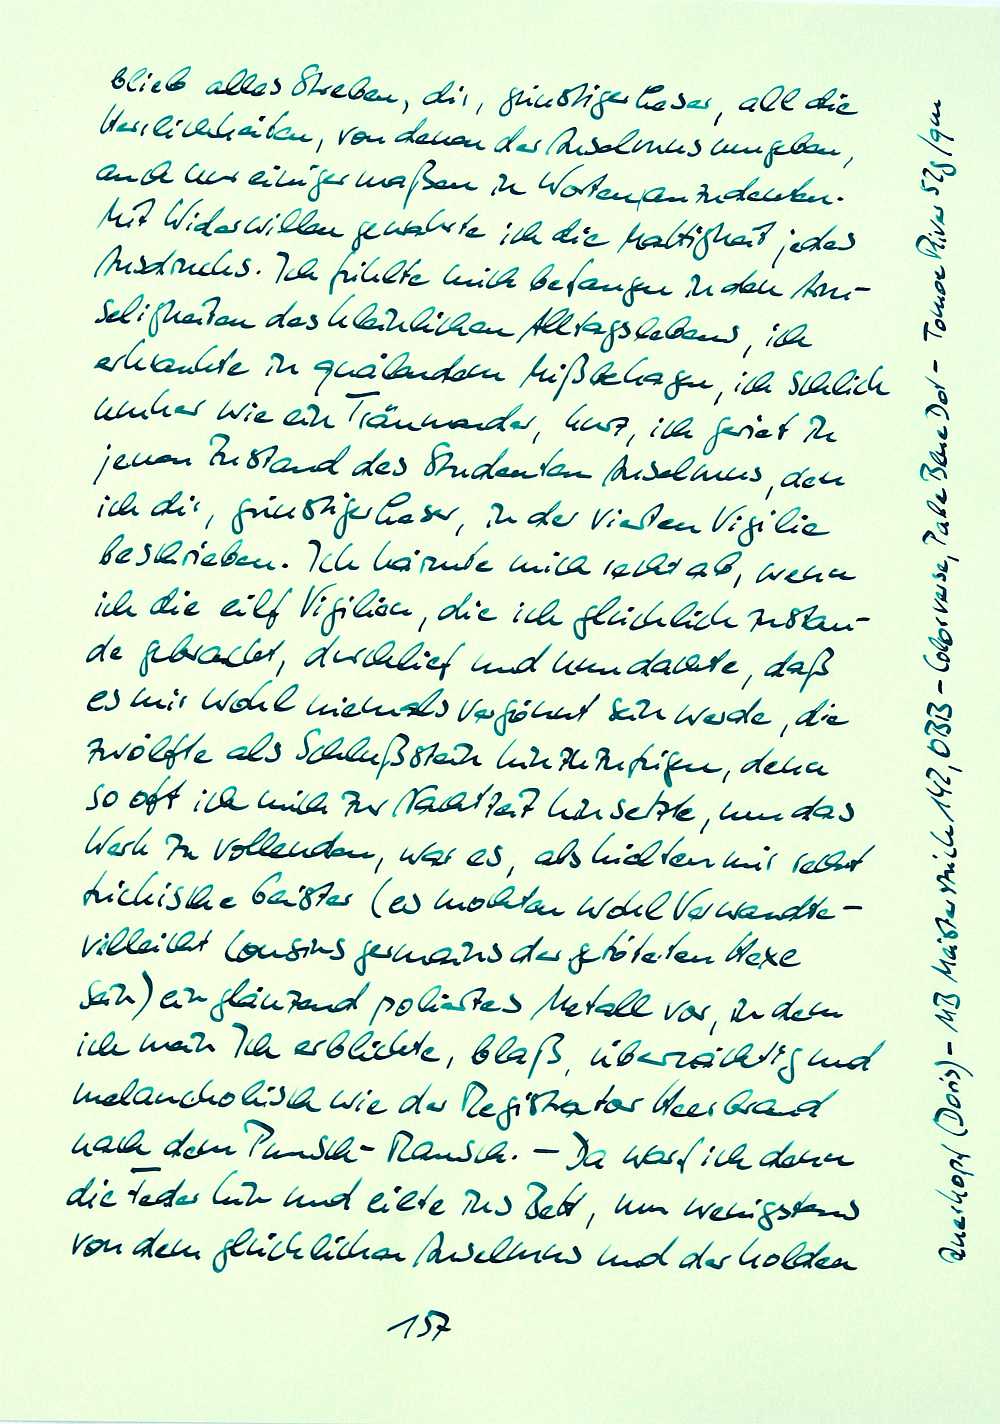 blieb alles Streben, dir, günstiger Leser, all die
Herrlichkeiten, von denen der Anselmus umgeben,
auch nur einigermaßen in Worten anzudeuten.
Mit Widerwillen gewahrte ich die Mattigkeit jedes
Ausdrucks. Ich fühlte mich befangen in den Arm-
seligkeiten des kleinlichen Alltagslebens, ich
erkrankte in quälendem Mißbehagen, ich schlich
umher wie ein Träumender, kurz, ich geriet in
jenen Zustand des Studenten Anselmus, den
ich dir, günstiger Leser, in der vierten Vigilie
beschrieben. Ich härmte mich recht ab, wenn
ich die eilf Vigilien, die ich glücklich zustan-
de gebracht, durchlief und nun dachte, daß
es mir wohl niemals vergönnt sein werde, die
zwölfte als Schlußstein hinzuzufügen, denn
so oft ich mich zur Nachtzeit hinsetzte, um das
Werk zu vollenden, war es, als hielten mir recht
tückische Geister (es mochten wohl Verwandte -
villeicht Cousins germains der getöteten Hexe
sein) ein glänzend poliertes Metall vor, in dem
ich mein Ich erblickte, blaß, übernächtig und
melancholisch wie der Registrator Heerbrand
nach dem Punsch-Rausch. - Da warf ich denn
die Feder hin und eilte ins Bett, um wenigstens
von dem glücklichen Anselmus und der holden
157
(Doris) - MB Meisterstück 142, OBB - Colorverse, Pale Blue Dot - Tomoe River 52g/qm